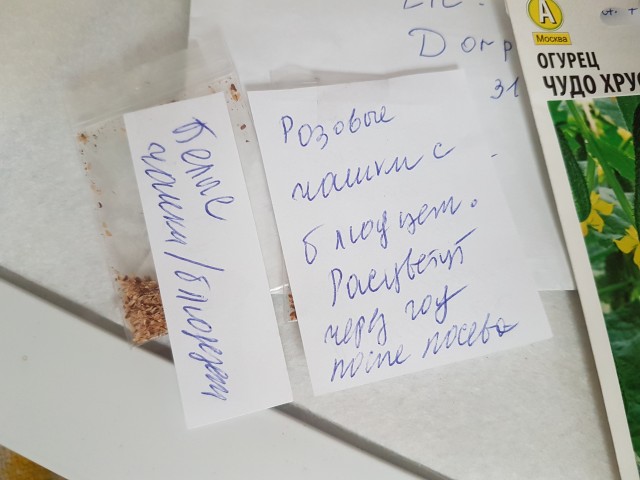 Белые
чашки/блюдцем
Розовые
чашки с
блюдцем.
Расцветут
через год
после посева
31
А
Москва
ОГУРЕЦ
ЧУДО ХРУС